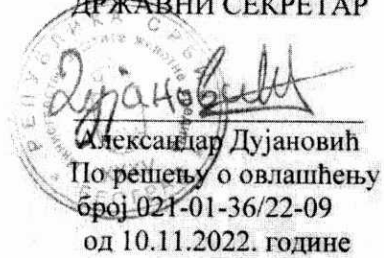 ДРЖАВНИ СЕКРЕТАР
РЕПУБЛИКА СРБИЈА
Дујановић
Александар Дујановић
По решењу о овлашћењу
број 021-01-36/22-09
од 10.11.2022. године